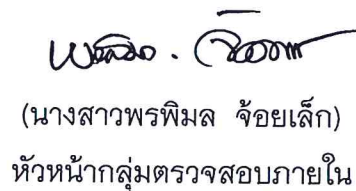 (นางสาวพรพิมล จ้อยเล็ก)
หัวหน้ากลุ่มตรวจสอบภายใน